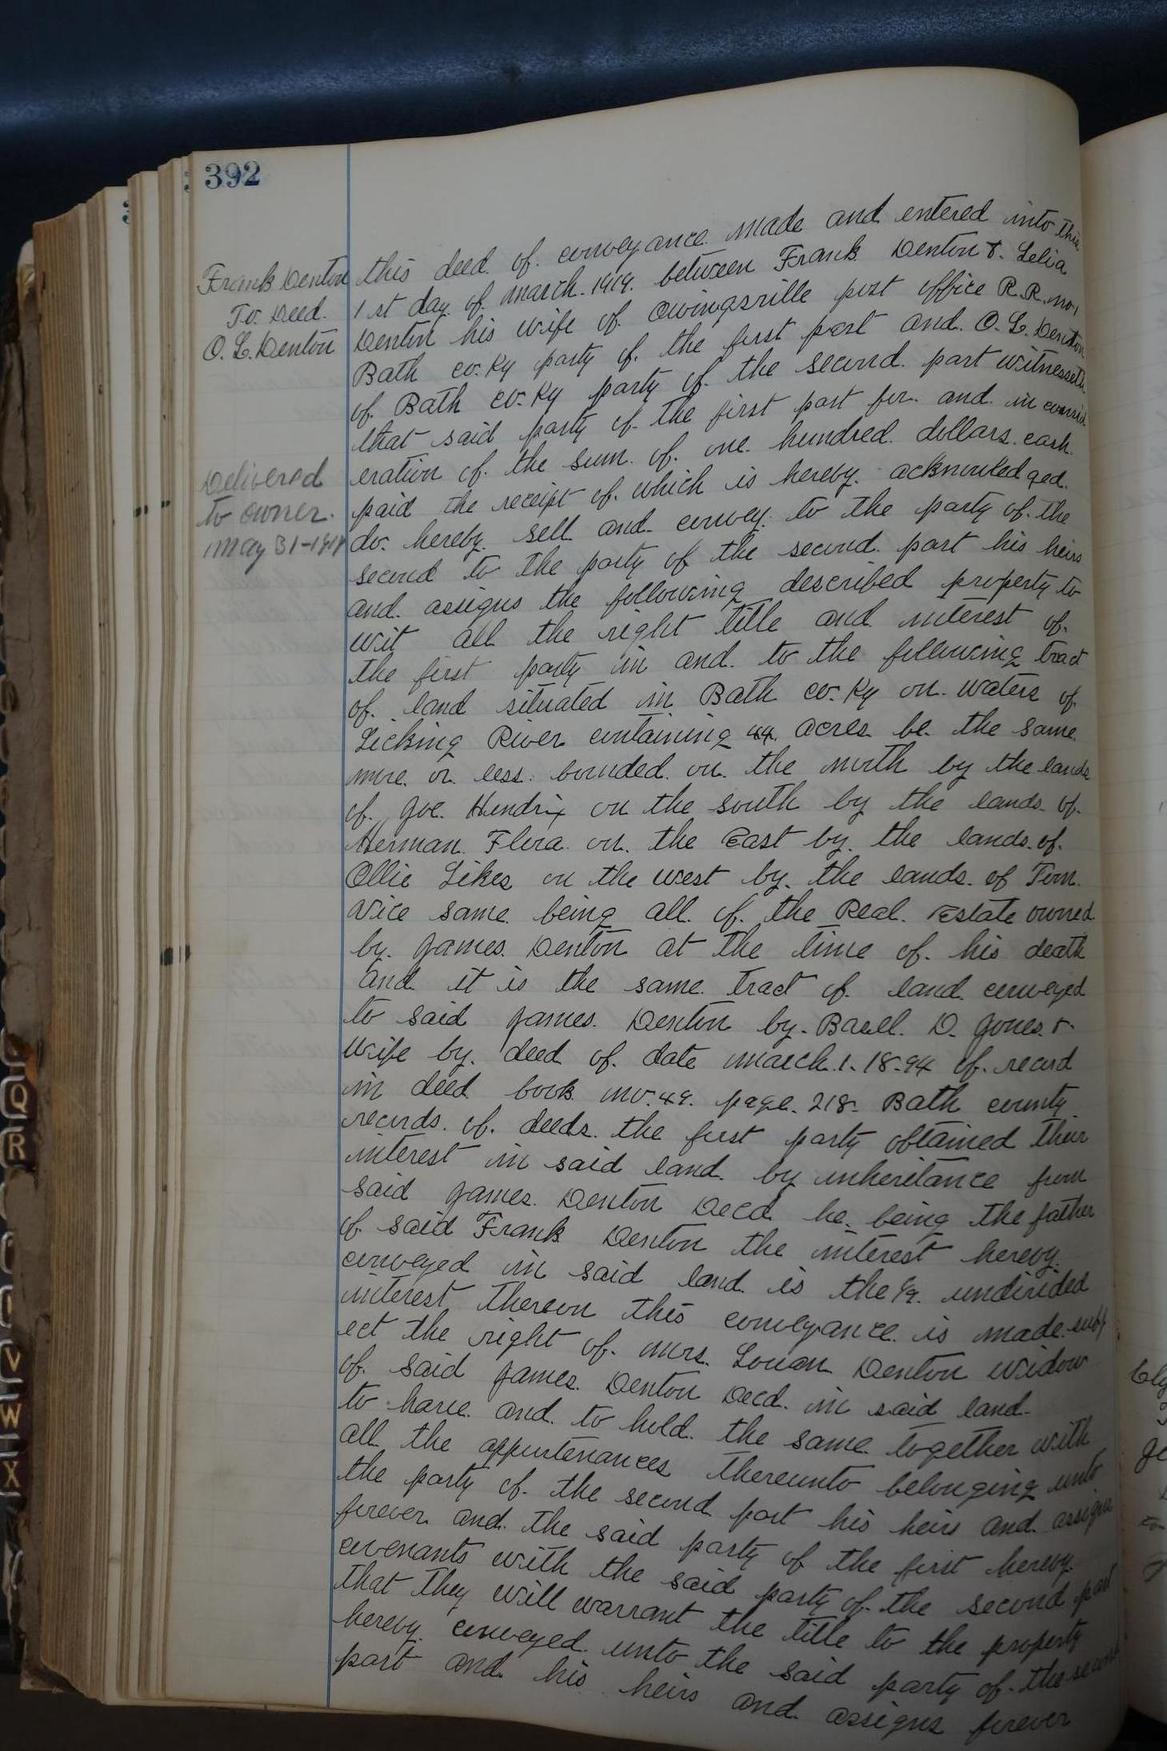 392
Frank Denton
To. Deed.
O. L. Denton
Delivered
to owner.
May 31-19
this deed. of. conveyance made and entered into this
1st day of march. 1919. between Frank Denton &. Lelia
Denton his wife of Owingsville post office R.R. no 1
Bath co. Ky party of. the first part and. O. L. Denton
of. Bath co. Ky party of. the second. part witnesseth
that said party of. the first part for. and. in consid
eration of. the sum. of. one. hundred. dollars. cash.
paid the receipt of. which is hereby. acknowledged.
do. hereby. sell and. convey. to the party of. the
second to the party of the second. part his heirs
and. assigns the following described property to
wit all the right title and interest of.
the first party in and. to the following tract
of. land situated in Bath co. Ky on. waters of.
Licking River containing 44. acres be. the same.
more. or less. bounded. on. the north by the lands
of. Joe. Hendrix on the south by the lands. of.
Herman. Flora. on. the East by. the lands. of.
Ollie Likes on the west by. the lands. of Tom.
Vice same. being all. of. the Real. Estate owned
by. James. Denton at the time of. his death
and. it is the same. tract of. land. conveyed
to said James. Denton by. Basil. D. Jones. &.
wife by. deed of. date march. 1. 18-94 of. record
in deed book no. 49. page. 218. Bath county.
records. of. deeds. the first party obtained their
interest in said land. by inheritance from
said James. Denton Decd. he. being the father
of. said Frank Denton the interest hereby.
conveyed in said land. is the 1/9. undivided
interest thereon this conveyance. is made. subj
ect the right of. mrs. Louan Denton widow
of. said James. Denton Decd. in said land.
to have and. to hold. the same together with
all. the appurtenances thereunto belonging unto
the party of. the second part his heirs and. assigns
forever. and. the said party of the first hereby.
covenants with the said party of. the second part
that they will warrant the title to the property
hereby. conveyed. unto the said party of. the second
part and. his heirs and assigns forever